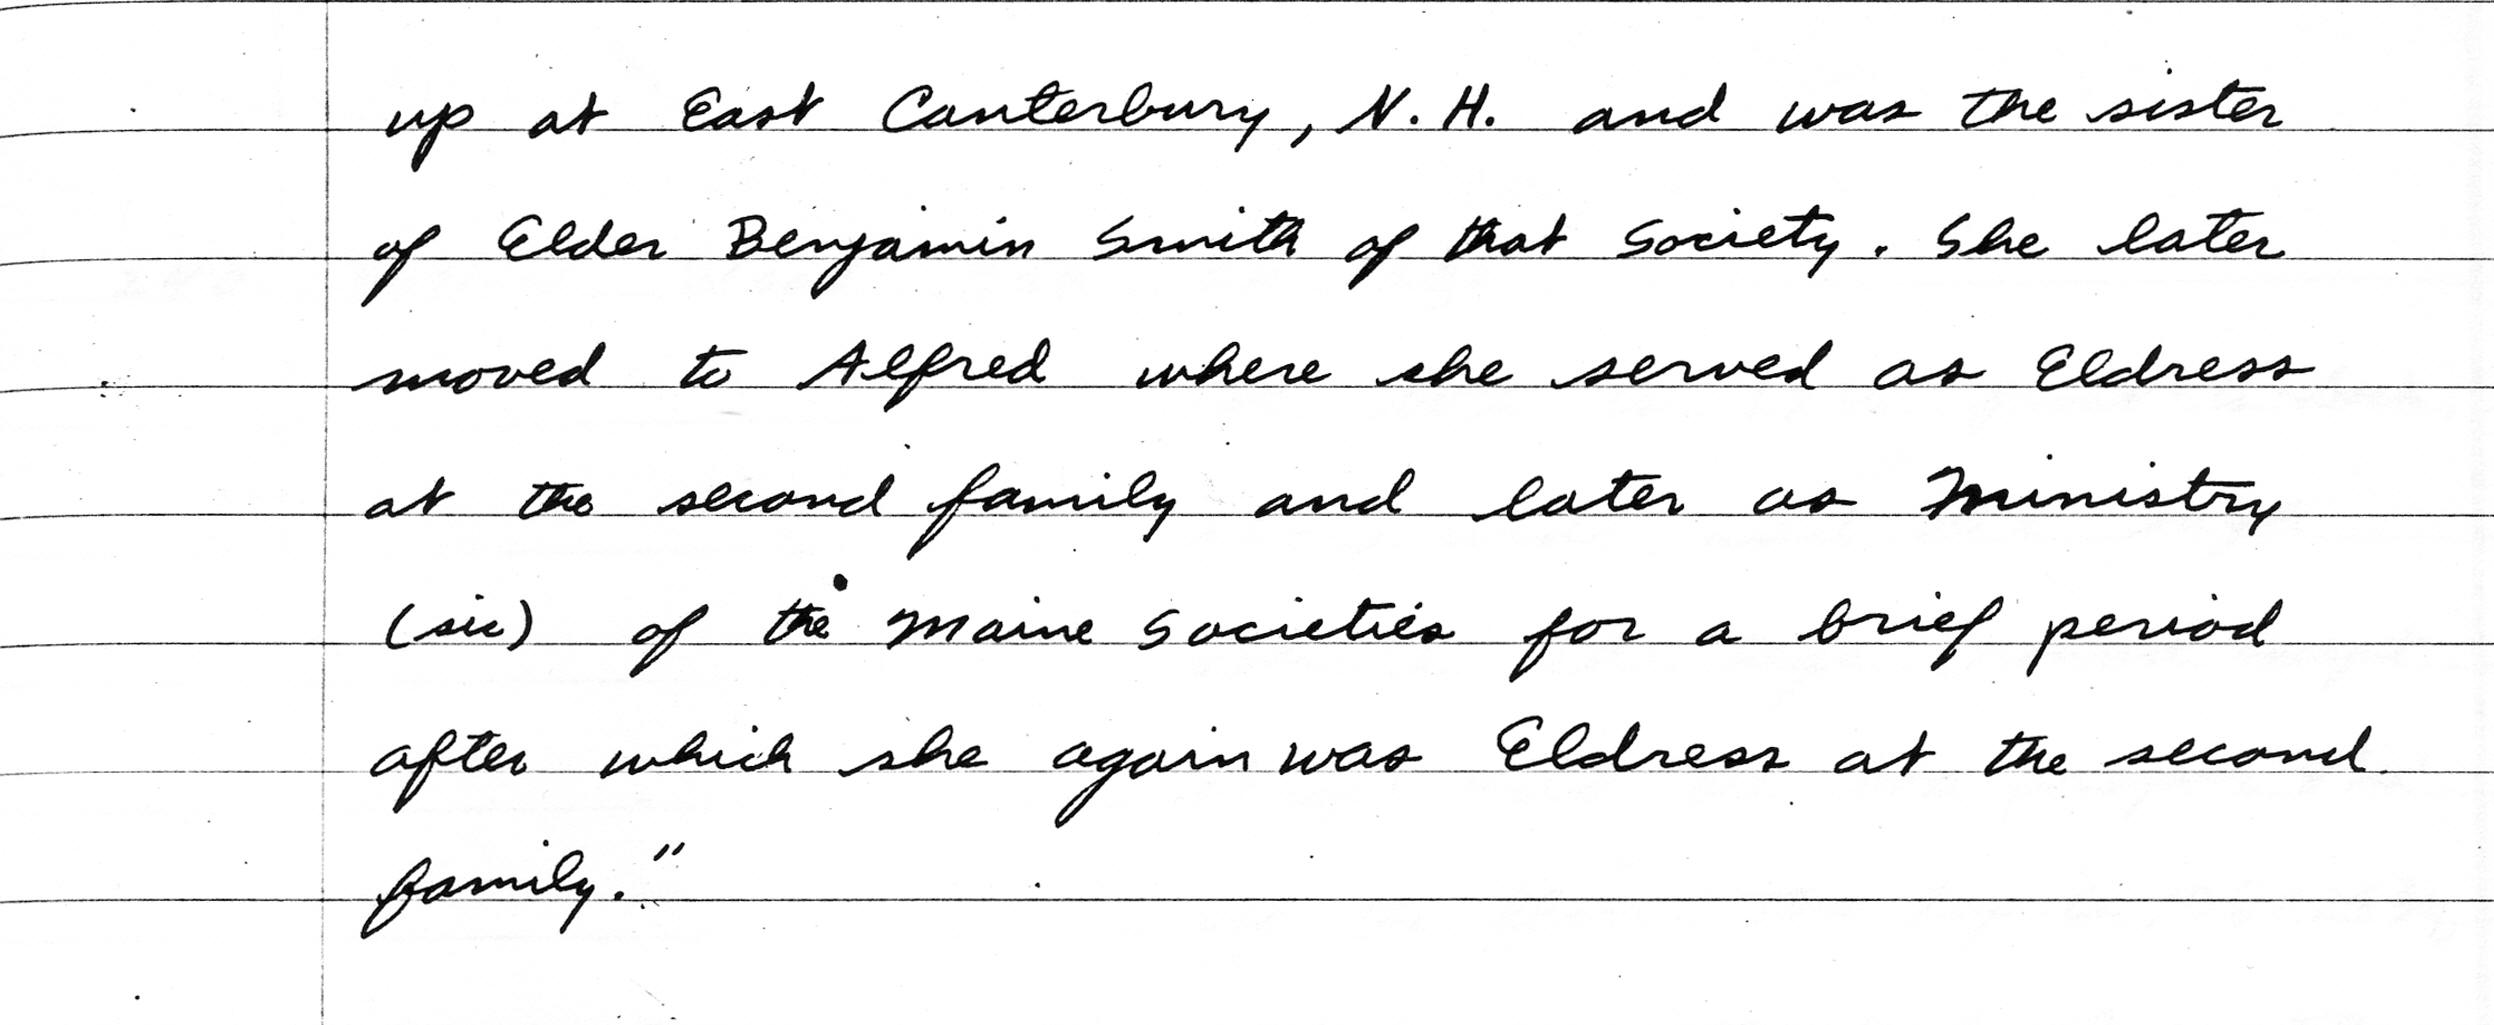 up at East Canterbury, N. H. and was the sister
of Elder Benjamin Smith of that Society. She later
moved to Alfred where she served as Eldress
at the second family and later as Ministry
(sic) of the Maine Societies for a brief period
after which she again was Eldress at the second
family."